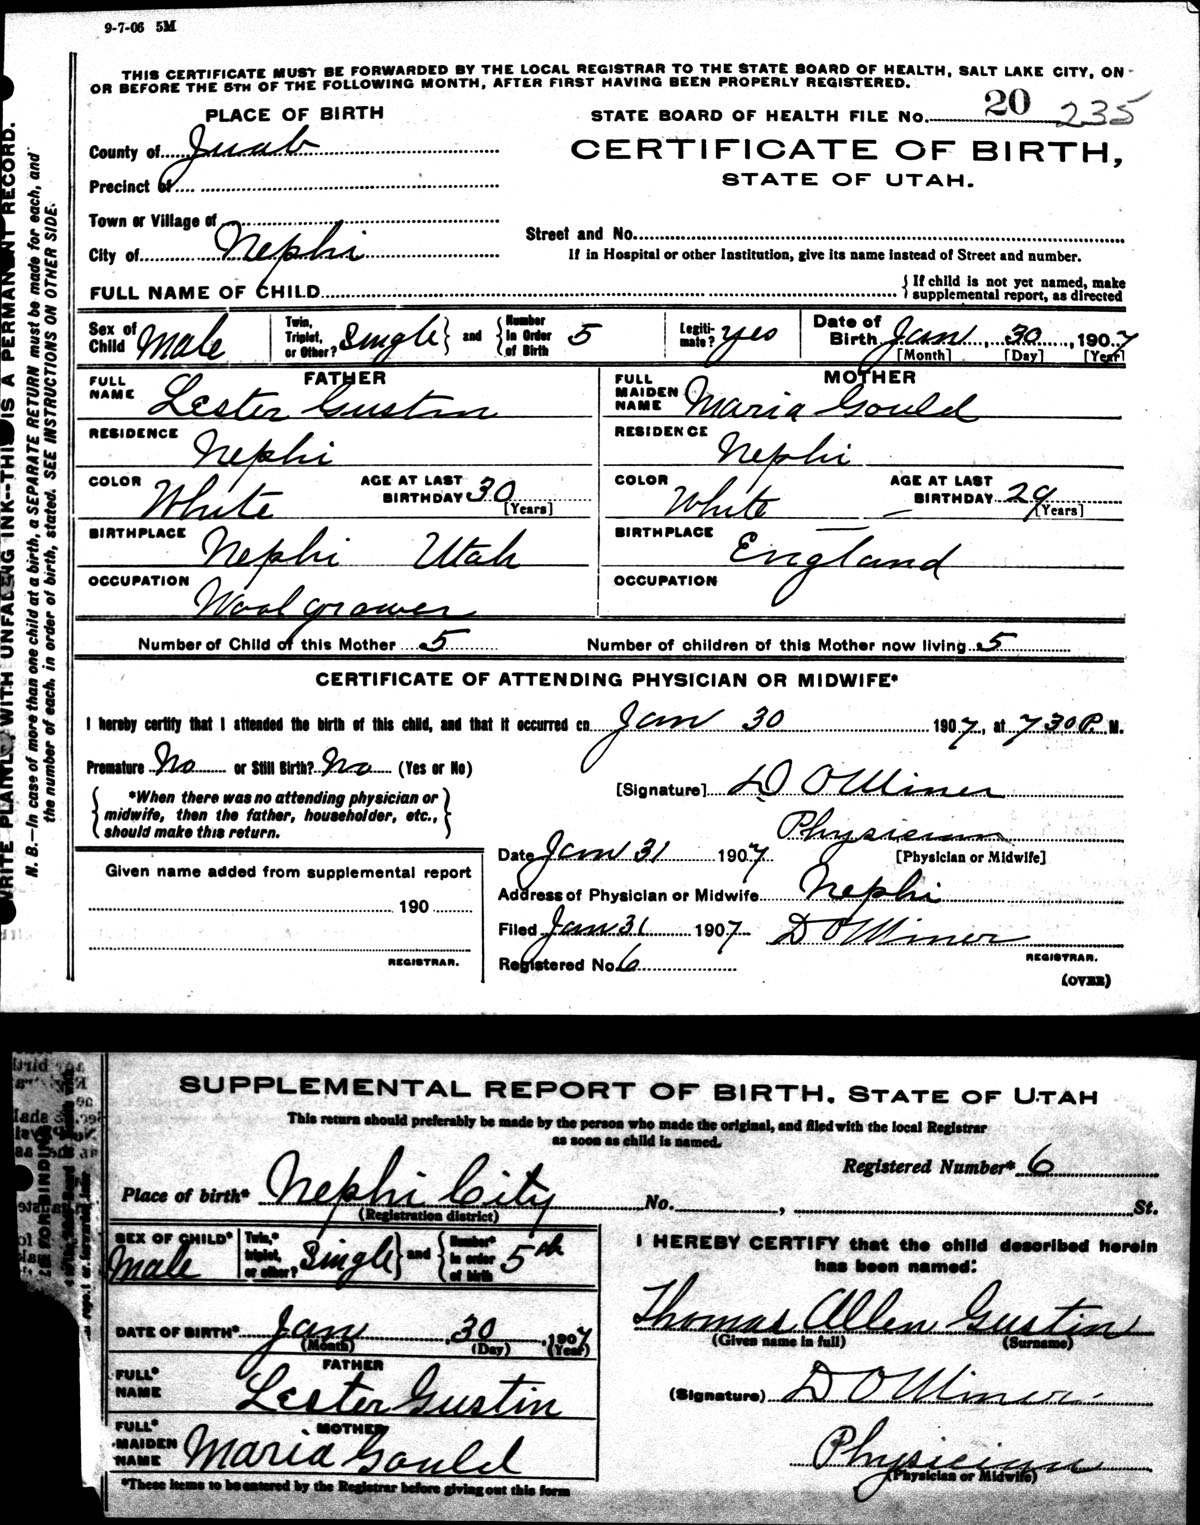 9-7-06 5M
THIS CERTIFICATE MUST BE FORWARDED BY THE LOCAL REGISTRAR TO THE STATE BOARD OF HEALTH, SALT LAKE CITY, ON
OR BEFORE THE 5TH OF THE FOLLOWING MONTH, AFTER FIRST HAVING BEEN PROPERLY REGISTERED.
PLACE OF BIRTH
STATE BOARD OF HEALTH FILE No. 20 235
County of Juab
CERTIFICATE OF BIRTH,
STATE OF UTAH.
Precinct of
Town or Village of
Street and No.
City of Nephi
If in Hospital or other Institution, give its name instead of Street and number.
FULL NAME OF CHILD
{If child is not yet named, make
supplemental report, as directed
Sex of Child Male
Twin, Triplet, or Other? Single} and {Number in Order of Birth 5
Legitimate? yes
Date of Birth Jan, 30, 1907
[Month] [Day] [Year]
FATHER
FULL NAME Lester Gustin
MOTHER
FULL MAIDEN NAME Maria Gould
RESIDENCE Nephi
RESIDENCE Nephi
COLOR White AGE AT LAST BIRTHDAY 30 [Years]
COLOR White AGE AT LAST BIRTHDAY 29 [Years]
BIRTHPLACE Nephi Utah
BIRTHPLACE England
OCCUPATION Wool grower
OCCUPATION
Number of Child of this Mother 5 Number of children of this Mother now living 5
CERTIFICATE OF ATTENDING PHYSICIAN OR MIDWIFE*
I hereby certify that I attended the birth of this child, and that it occurred on Jan 30 1907, at 7 30 P. M.
Premature No or Still Birth? No (Yes or No)
[Signature] D O Miner
{*When there was no attending physician or
midwife, then the father, householder, etc.,
should make this return.}
Physician
[Physician or Midwife]
Date Jan 31 1907
Given name added from supplemental report
Address of Physician or Midwife Nephi
190
Filed Jan 31 1907 D O Miner
REGISTRAR.
REGISTRAR.
Registered No. 6
(OVER)
WRITE PLAINLY WITH UNFADING INK--THIS IS A PERMANENT RECORD.
N. B.—In case of more than one child at a birth, a SEPARATE RETURN must be made for each, and
the number of each, in order of birth, stated. SEE INSTRUCTIONS ON OTHER SIDE.
SUPPLEMENTAL REPORT OF BIRTH, STATE OF UTAH
This return should preferably be made by the person who made the original, and filed with the local Registrar
as soon as child is named.
Registered Number* 6
Place of birth* Nephi City No. , St.
(Registration district)
SEX OF CHILD* Male
Twin,* triplet, or other? Single} and {Number* in order of birth 5th
I HEREBY CERTIFY that the child described herein
has been named:
Thomas Allen Gustin
(Given name in full) (Surname)
DATE OF BIRTH* Jan 30, 1907
(Month) (Day) (Year)
FATHER
FULL* NAME Lester Gustin
(Signature) D O Miner
MOTHER
FULL* MAIDEN NAME Maria Gould
Physician
(Physician or Midwife)
*These items to be entered by the Registrar before giving out this form